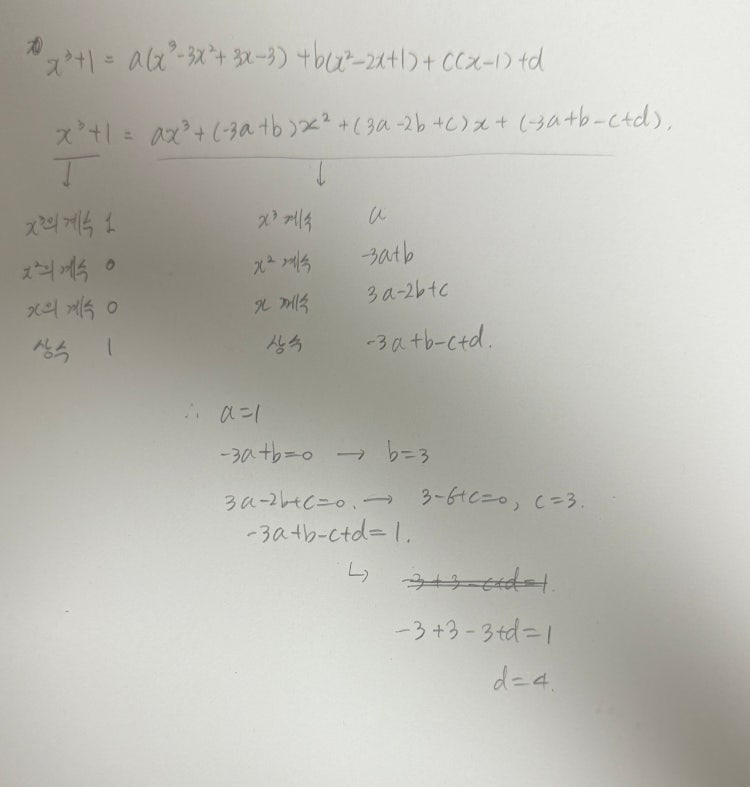 x³+1 = a(x³-3x²+3x-3)+b(x²-2x+1)+c(x-1)+d
x³+1 = ax³+(-3a+b)x²+(3a-2b+c)x+(-3a+b-c+d).
↓ ↓
x³의 계수 1 x³ 계수 a
x²의 계수 0 x² 계수 -3a+b
x의 계수 0 x 계수 3a-2b+c
상수 1 상수 -3a+b-c+d.
∴ a=1
-3a+b=0 → b=3
3a-2b+c=0. → 3-6+c=0, c=3.
-3a+b-c+d=1.
↳ -3+3-c+d=1.
-3+3-3+d=1
d=4.